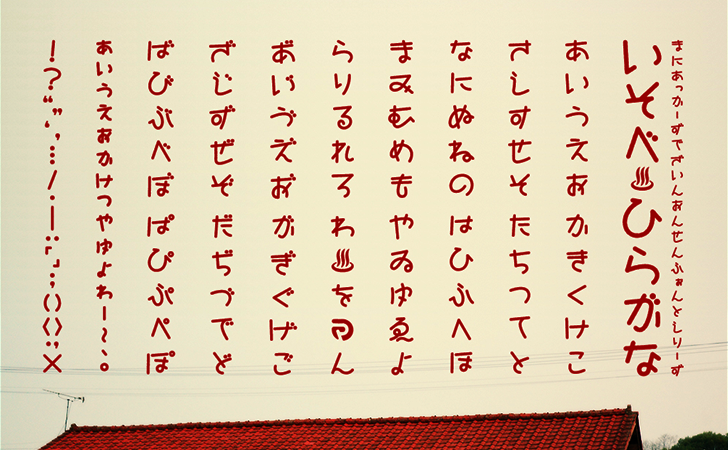 まにあっかーずでざいんおんせんふぉんとしりーず
いそべ♨ひらがな
あいうえおかきくけこ
さしすせそたちつてと
なにぬねのはひふへほ
まみむめもやゐゆゑよ
らりるれろわ♨をん
あ゙い゙ゔえ゙お゙がぎぐげご
ざじずぜぞだぢづでど
ばびぶべぼぱぴぷぺぽ
ぁぃぅぇぉヵヶっゃゅょゎー〜、。
！？“”‘’…／・―：「」；（）〈〉：；×